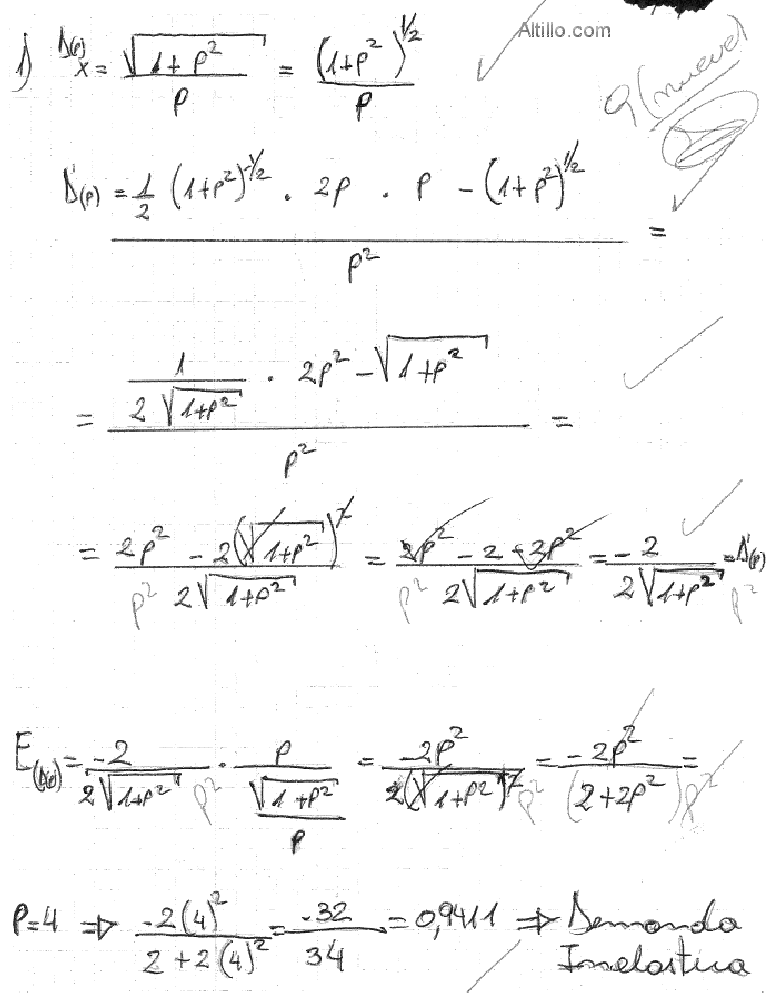 Altillo.com
1) D(p) x = √(1+p²) / p = (1+p²)^1/2 / p
9 (nueve)
D'(p) = 1/2 (1+p²)^-1/2 · 2p · p - (1+p²)^1/2 / p² =
= 1 / 2√(1+p²) · 2p² - √(1+p²) / p² =
= 2p² - 2(√(1+p²))² / p² 2√(1+p²) = 2p² - 2 - 2p² / p² 2√(1+p²) = -2 / 2√(1+p²) p² = D'(p)
E(D(p)) = -2 / 2√(1+p²) p² · p / (√(1+p²) / p) = -2p² / 2(√(1+p²))² p² = -2p² / (2+2p²) p² =
P=4 ⇒ -2(4)² / 2+2(4)² = -32 / 34 = 0,9411 ⇒ Demanda
Inelastica